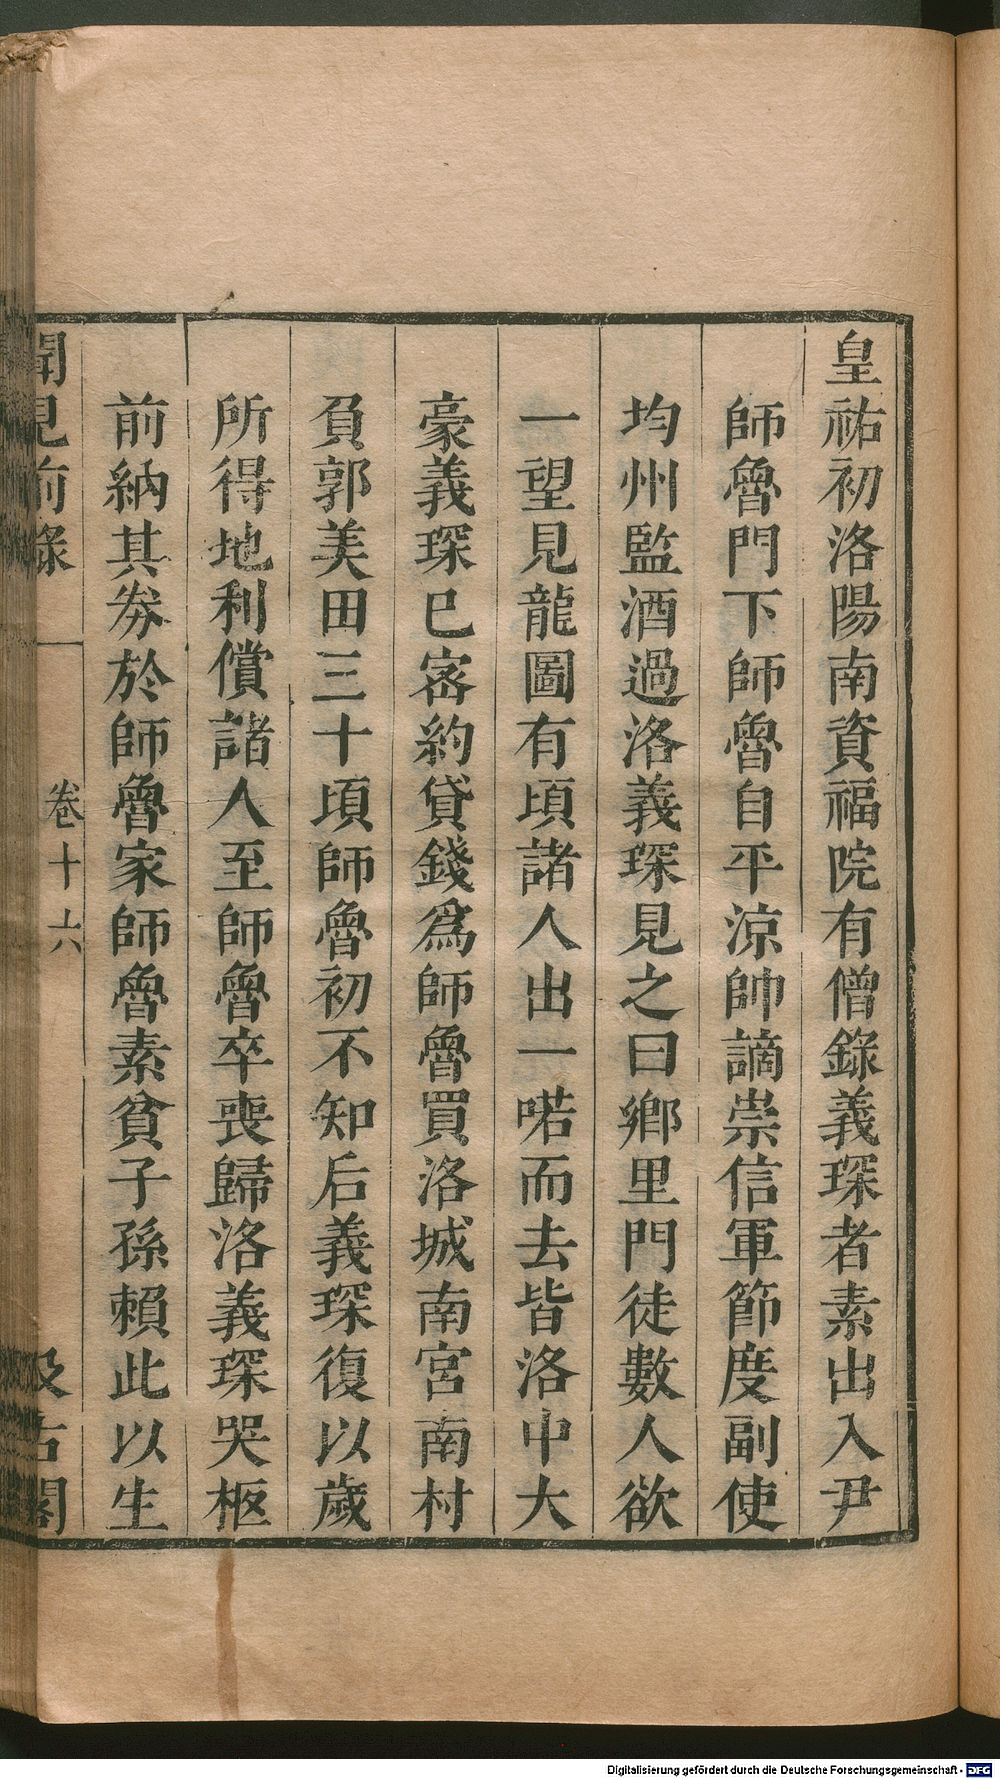 皇祐初洛陽南資福院有僧錄義琛者素出入尹
師魯門下師魯自平涼帥謫崇信軍節度副使
均州監酒過洛義琛見之曰鄉里門徒數人欲
一望見龍圖有頃諸人出一喏而去皆洛中大
豪義琛已密約貸錢爲師魯買洛城南宮南村
負郭美田三十頃師魯初不知后義琛復以歲
所得地利償諸人至師魯卒喪歸洛義琛哭柩
前納其券於師魯家師魯素貧子孫賴此以生
聞見前錄
卷十六
汲古閣
Digitalisierung gefördert durch die Deutsche Forschungsgemeinschaft - DFG